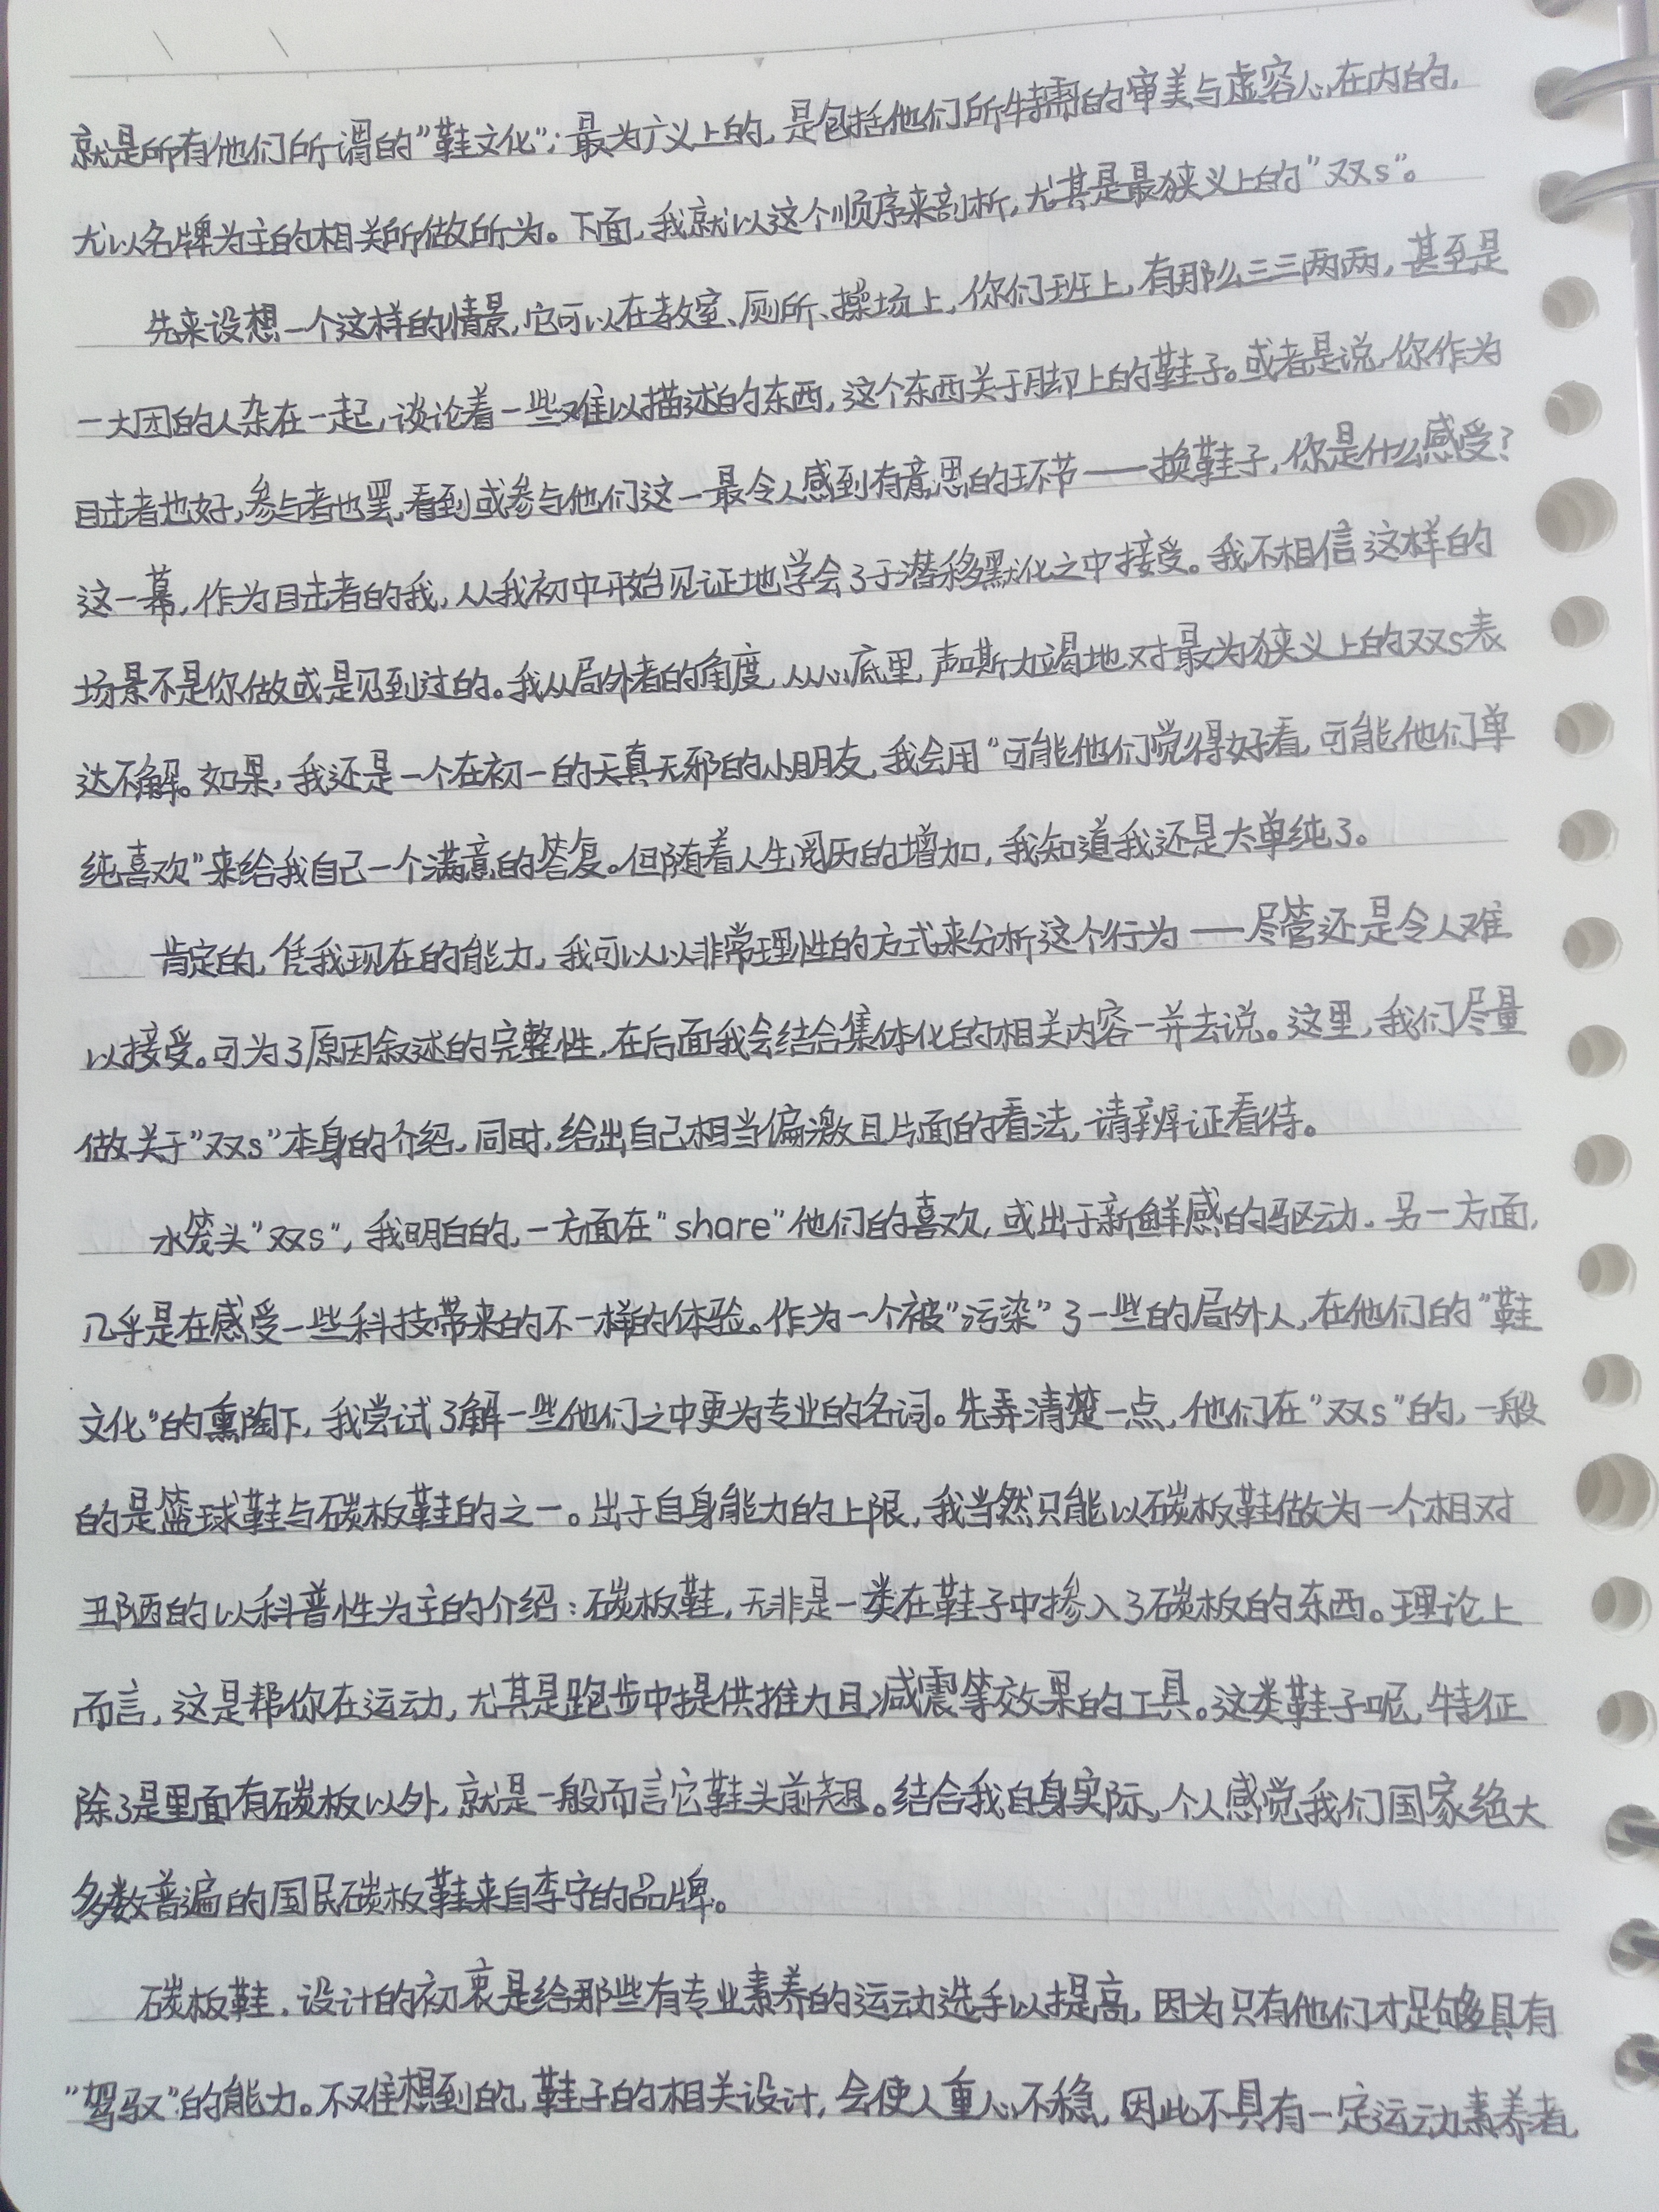 就是所有他们所谓的"鞋文化"；最为广义上的，是包括他们所特需的审美与虚容心在内的，
尤以名牌为主的相关所做所为。下面，我就以这个顺序来剖析，尤其是最狭义上的"双s"。
先来设想一个这样的情景，它可以在教室、厕所、操场上，你们班上，有那么三三两两，甚至是
一大团的人杂在一起，谈论着一些难以描述的东西，这个东西关于脚上的鞋子。或者是说，你作为
目击者也好，参与者也罢，看到或参与他们这一最令人感到有意思的环节——换鞋子，你是什么感受？
这一幕，作为目击者的我，从我初中开始见证地学会了于潜移默化之中接受。我不相信这样的
场景不是你做或是见到过的。我从局外者的角度，从心底里，声嘶力竭地对最为狭义上的双s表
达不解。如果，我还是一个在初一的天真无邪的小朋友，我会用"可能他们觉得好看，可能他们单
纯喜欢"来给我自己一个满意的答复。但随着人生阅历的增加，我知道我还是太单纯了。
肯定的，凭我现在的能力，我可以以非常理性的方式来分析这个行为——尽管还是令人难
以接受。可为了原因叙述的完整性，在后面我会结合集体化的相关内容一并去说。这里，我们尽量
做关于"双s"本身的介绍，同时，给出自己相当偏激且片面的看法，请辨证看待。
水笼头"双s"，我明白的，一方面在"share"他们的喜欢，或出于新鲜感的驱动．另一方面，
几乎是在感受一些科技带来的不一样的体验。作为一个被"污染"了一些的局外人，在他们的"鞋
文化"的熏陶下，我尝试了解一些他们之中更为专业的名词。先弄清楚一点，他们在"双s"的，一般
的是篮球鞋与碳板鞋的之一。出于自身能力的上限，我当然只能以碳板鞋做为一个相对
丑陋的以科普性为主的介绍：碳板鞋，无非是一类在鞋子中掺入了碳板的东西。理论上
而言，这是帮你在运动，尤其是跑步中提供推力且减震等效果的工具。这类鞋子呢，特征
除了是里面有碳板以外，就是一般而言它鞋头前翘。结合我自身实际，个人感觉我们国家绝大
多数普遍的国民碳板鞋来自李宁的品牌。
碳板鞋，设计的初衷是给那些有专业素养的运动选手以提高，因为只有他们才足够具有
"驾驭"的能力。不难想到的，鞋子的相关设计，会使人重心不稳，因此不具有一定运动素养者，